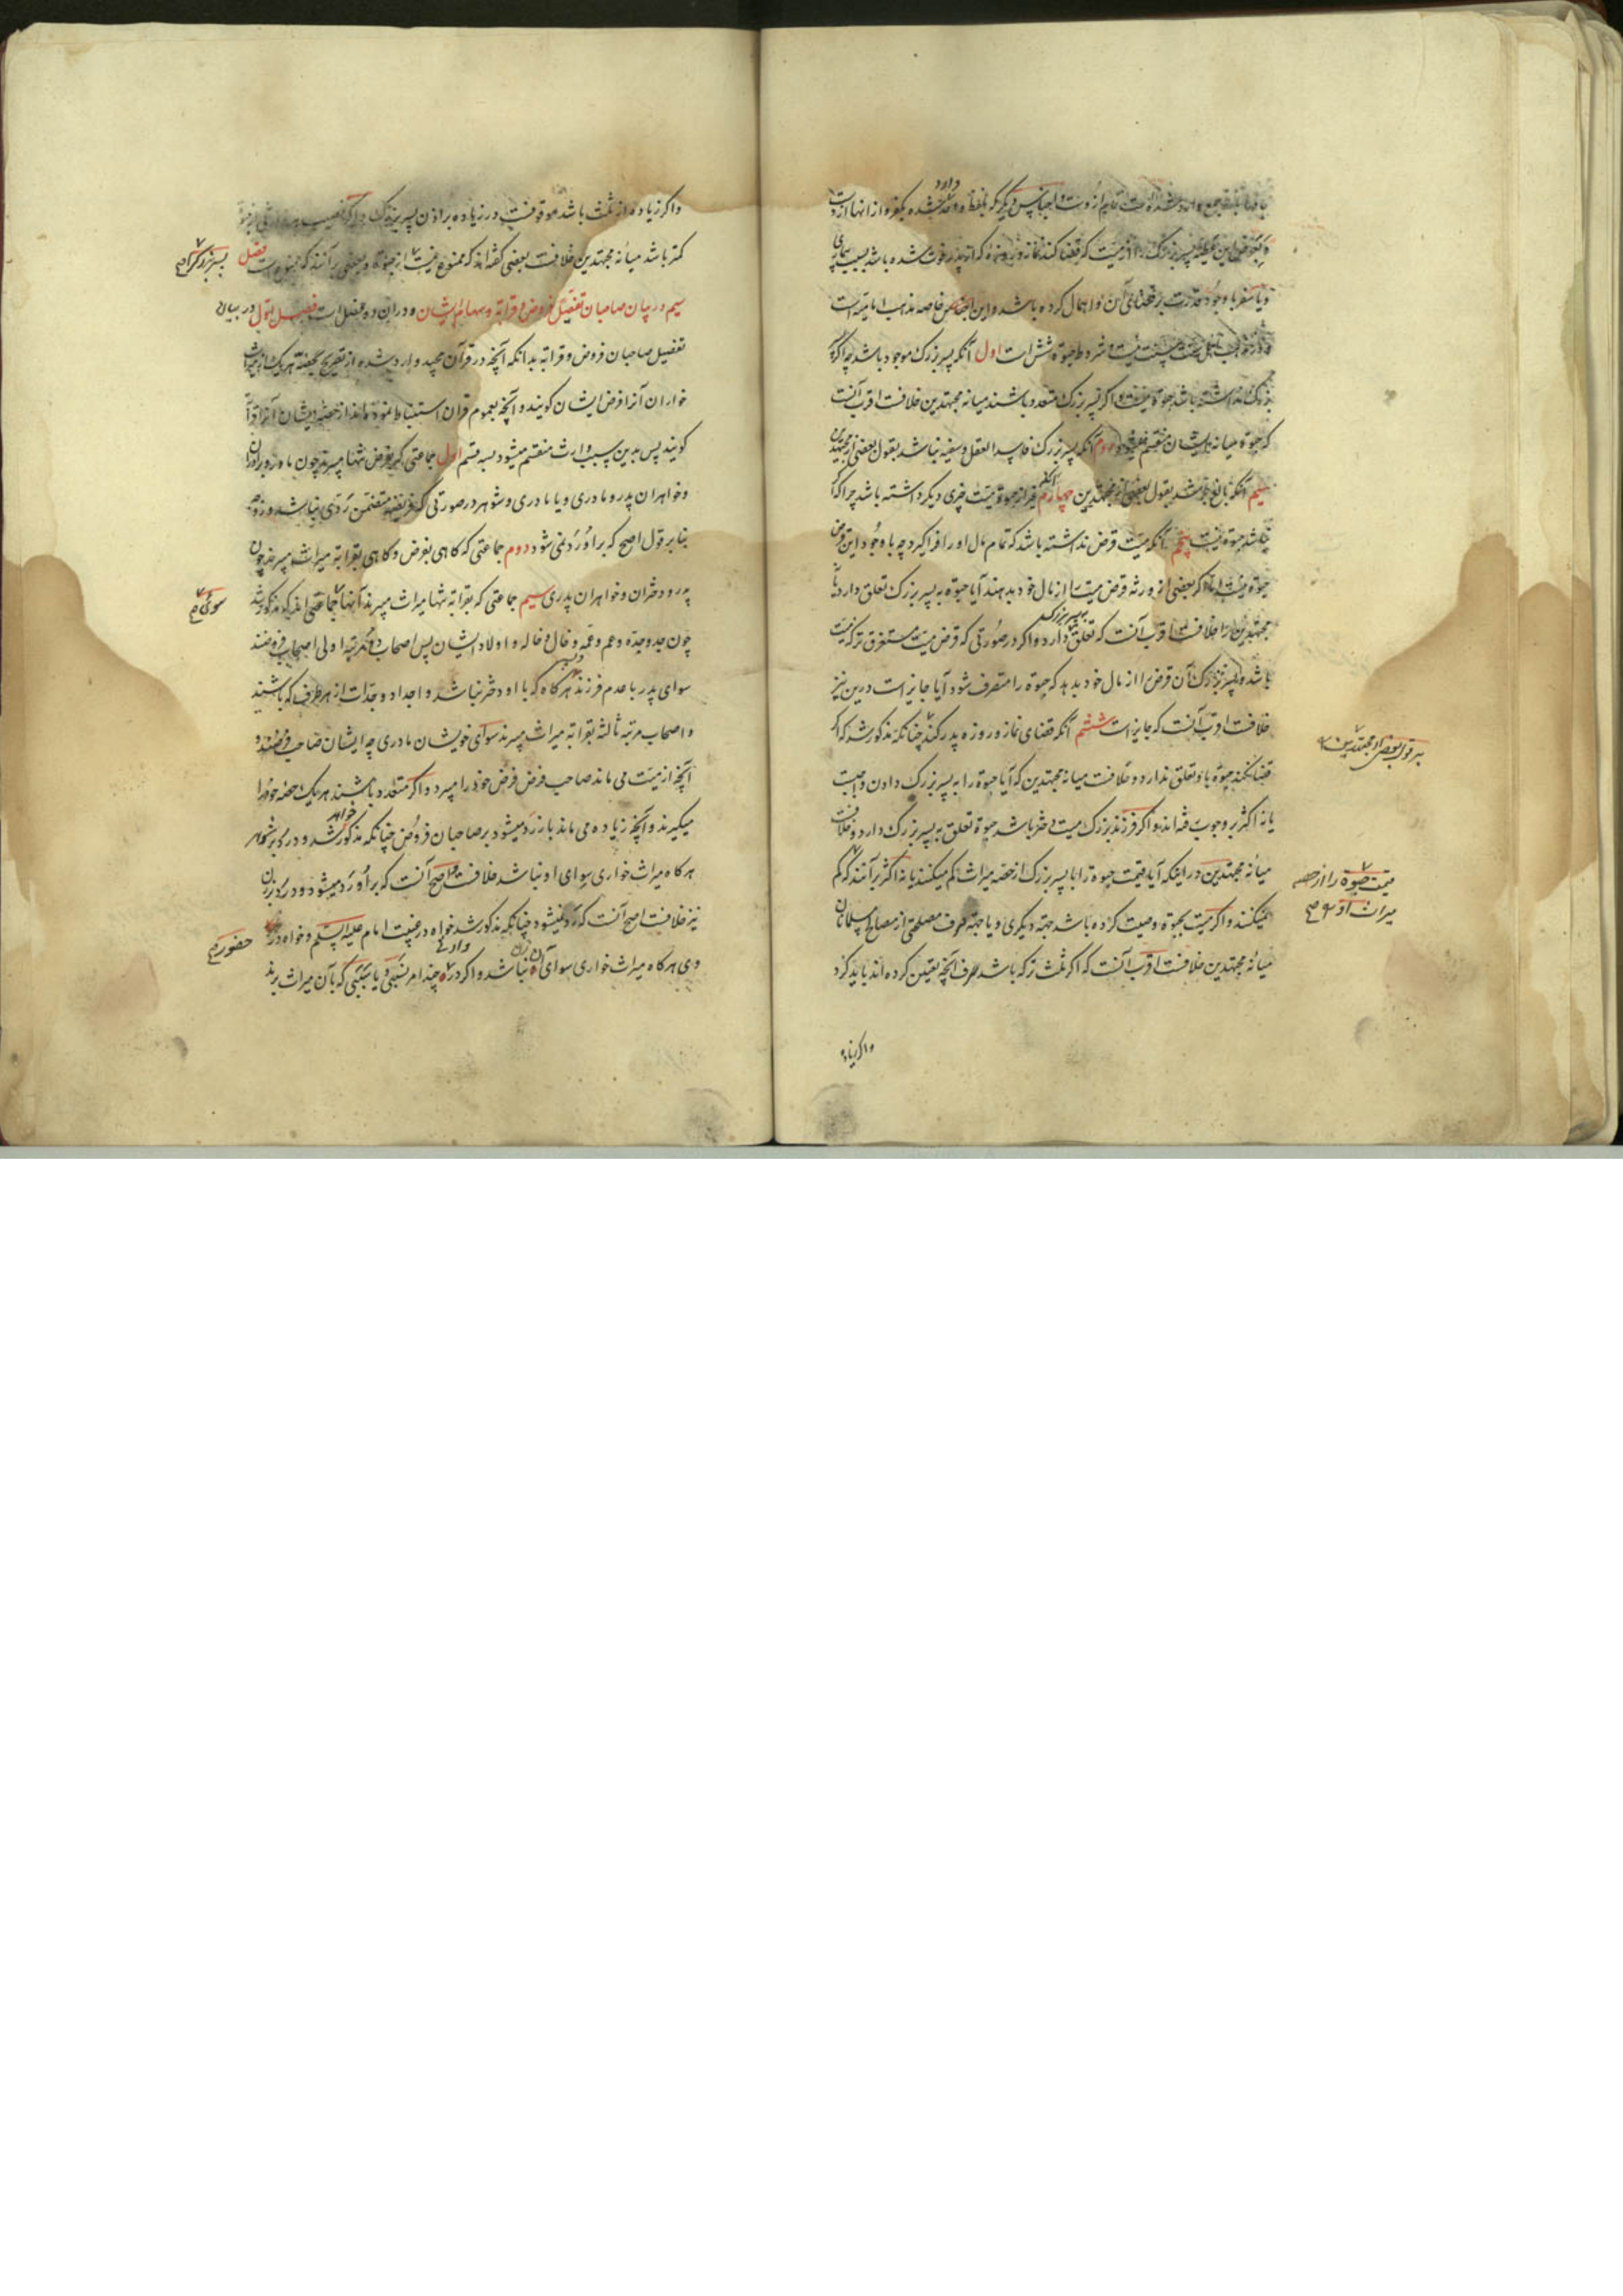 و این عطیه پسر بزرگ را از میت که قضا کند نماز و روزهٔ که از پدر فوت شده باشد بسبب بیماری
و یا سفر با وجود قدرت بر قضای آن و اهمال کرده باشد و این خاصه مذهب امامیه است
و شروط حبوة شش است اول آنکه پسر بزرگ موجود باشد چه اگر
بزرگ نداشته باشد حبوة نیست و اگر پسر بزرگ متعدد باشند میانه مجتهدین خلافست اقرب آنست
که حبوة میانه ایشان منقسم میشود دوم آنکه پسر بزرگ فاسد العقل و سفیه نباشد بقول بعضی از مجتهدین
سیم آنکه بالغ باشد بقول بعضی از مجتهدین چهارم آنکه غیر از حبوة میت چیزی دیگر داشته باشد چه اگر
نباشد حبوة نیست پنجم آنکه میت قرض نداشته باشد که تمام مال او را فرا گیرد چه با وجود این قرض
حبوة نیست اما اگر بعضی از ورثه قرض میت را از مال خود بدهند آیا حبوة به پسر بزرگ تعلق دارد یا نه
مجتهدین را خلافست اقرب آنست که به پسر بزرگ تعلق دارد و اگر در صورتی که قرض میت مستغرق ترکه میت
باشد و پسر بزرگ آن قرض را از مال خود بدهد که حبوة را متصرف شود آیا جایز است درین نیز
خلافست اقرب آنست که جایز است ششم آنکه قضای نماز و روزه پدر کند چنانکه مذکور شد که اگر
بر قول بعضی از مجتهدین
قضا نکند حبوة باو تعلق ندارد و خلافست میانه مجتهدین که آیا حبوة را به پسر بزرگ دادن واجبست
یا نه اکثر بر وجوب رفته‌اند و اگر فرزند بزرگ میت دختر باشد حبوة تعلق به پسر بزرگ دارد و خلافست
میانه مجتهدین در اینکه آیا قیمت حبوة را با پسر بزرگ از حصه میراث کم میکنند یا نه اکثر برآنند که کم
قیمت حبوة را از حصه
میراث او
نمیکنند و اگر میت بحبوة وصیت کرده باشد جهة دیگری و یا جهة صرف مصلحتی از مصالح مسلمانان
میانه مجتهدین خلافست اقرب آنست که اگر ثلث ترکه باشد صرف آنچه تعیین کرده‌اند باید کرد
و اگر زیاده
و اگر زیاده از ثلث باشد موقوفست در زیاده بر اذن پسر بزرگ و اگر نصیب هر
کمتر باشد میانه مجتهدین خلافست بعضی گفته‌اند که ممنوع نیست از حبوة و بعضی برآنند که ممنوع است فصل
پسر بزرگ را
سیم در بیان صاحبان تفصیل فروض و قرابة و سهام ایشان و در آن ده فصل است فصل اول در بیان
تفصیل صاحبان فروض و قرابة بدانکه آنچه در قرآن مجید وارد شده از تصریح بحصّهٔ هر یک از میراث
خواران آنرا فرض ایشان گویند و آنچه بعموم قرآن استنباط نموده‌اند از حصّه ایشان آنرا قرابة
گویند پس بدین سبب وارث منقسم میشود بسه قسم اول جماعتی که بفرض تنها میبرند چون مادر و برادران
و خواهران پدر و مادری و یا مادری و شوهر در صورتی که فریضه متضمن ردّی نباشد و زوجه
بنا بر قول اصح که بر او ردّ نمی شود دوم جماعتی که گاهی بفرض و گاهی بقرابة میراث میبرند چون
پدر و دختران و خواهران پدری سیم جماعتی که بقرابة تنها میراث میبرند آنها جماعتی‌اند که مذکور شد
سوای
چون جد و جدّه و عم و عمه و خال و خاله و اولاد ایشان پس اصحاب مرتبه اولی اصحاب فروضند
سوای پدر با عدم فرزند هرگاه که با او دختر نباشد و اجداد و جدات از هر طرف که باشند
و اصحاب مرتبه ثالثه بقرابة میراث میبرند سوای خویشان مادری چه ایشان صاحب فرضند و
آنچه از میت می ماند صاحب فرض فرض خود را میبرد و اگر متعدد باشند هر یک حصّه خود را
میگیرند و آنچه زیاده می ماند باز ردّ میشود بر صاحبان فروض چنانکه مذکور خواهد شد و در ردّ بر شوهر
هرگاه میراث خواری سوای او نباشد خلافست و اصح آنست که بر او ردّ میشود و در ردّ بر زن
نیز خلافست اصح آنست که ردّ نمیشود چنانکه مذکور شد خواه در غیبت امام علیه السلم و خواه در
حضور
وی هرگاه میراث خواری سوای آن زن نباشد و اگر در وارثی چند امر نسبی یا سببی که بآن میراث برند